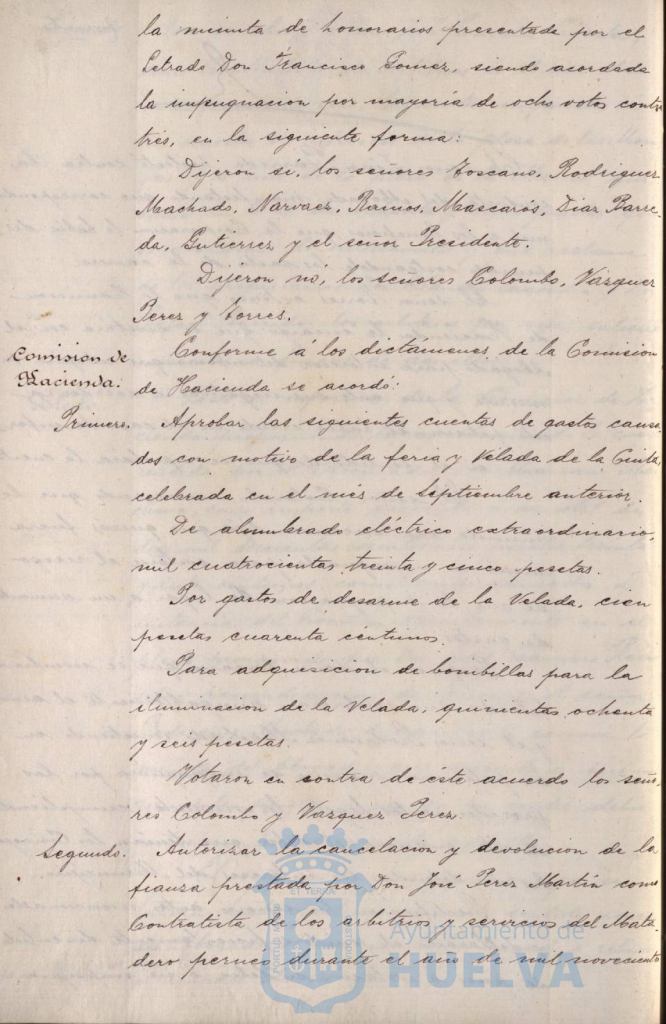 la minuta de honorarios presentada por el
Letrado Don Francisco Gomez, siendo acordada
la impugnacion por mayoría de ocho votos contra
tres, en la siguiente forma:
Dijeron sí, los señores Toscano, Rodriguez
Machado, Narvaez, Ramos, Mascarós, Diaz Barre-
da, Gutierrez y el señor Presidente.
Dijeron nó, los señores Colombo, Vazquez
Perez y Torres.
Comision de
Hacienda:
Conforme á los dictámenes de la Comision
de Hacienda se acordó:
Primero. Aprobar las siguientes cuentas de gastos causa-
dos con motivo de la feria y Velada de la Cinta,
celebrada en el més de Septiembre anterior.
De alumbrado eléctrico extraordinario,
mil cuatrocientas treinta y cinco pesetas.
Por gastos de desarme de la Velada, cien
pesetas cuarenta céntimos.
Para adquisicion de bombillas para la
iluminacion de la Velada, quinientas ochenta
y seis pesetas.
Votaron en contra de éste acuerdo los seño-
res Colombo y Vazquez Perez.
Segundo. Autorizar la cancelacion y devolucion de la
fianza prestada por Don José Perez Martín como
Contratista de los arbitrios y servicios del Mata-
dero pernéo durante el año de mil novecientos
Ayuntamiento de
HUELVA